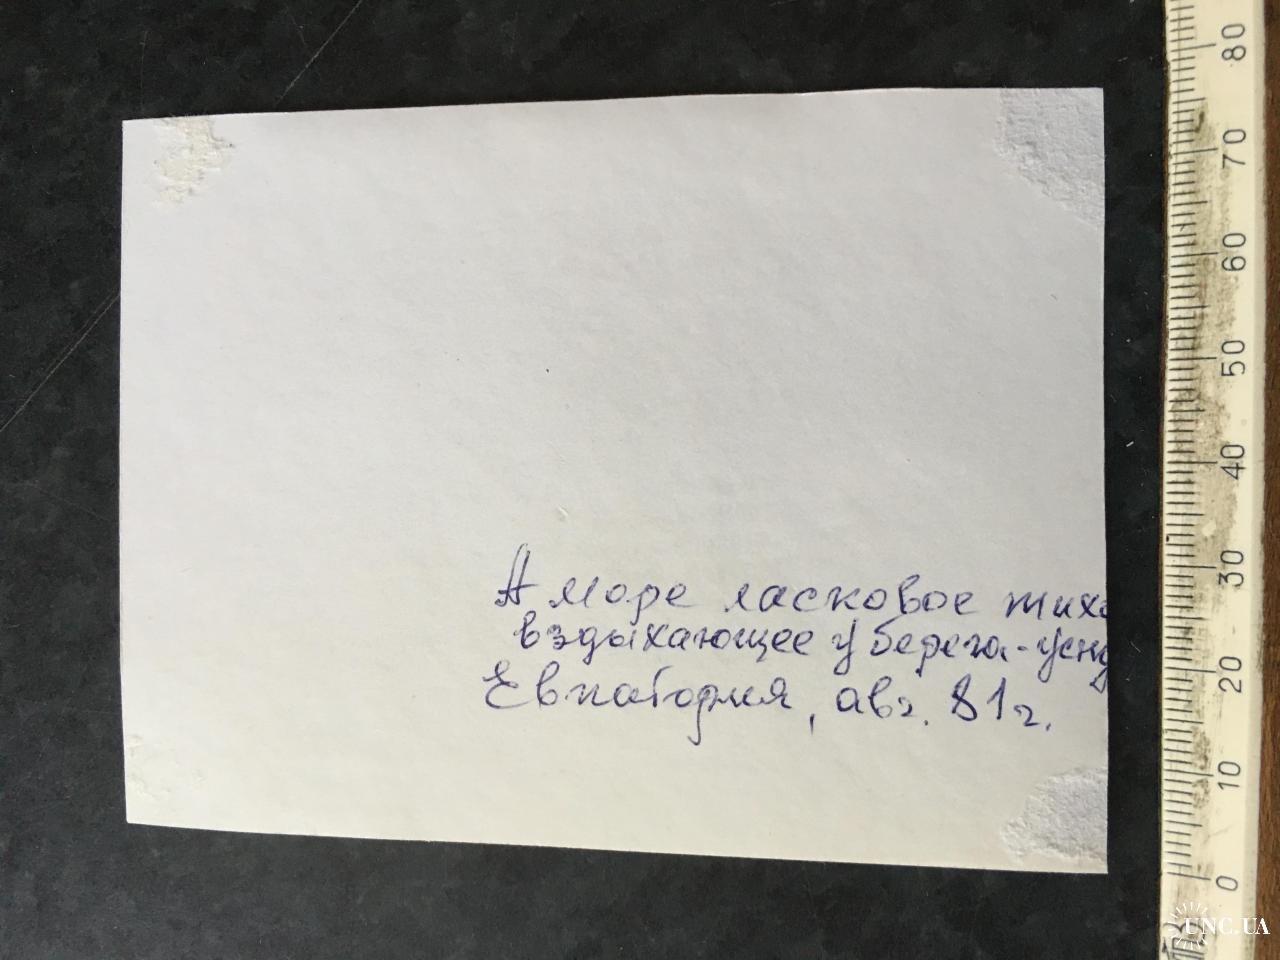 А море ласковое тихо
вздыхающее у берега - усну
Евпатория, авг. 81 г.
80
70
60
50
40
30
20
10
0
UNC.UA